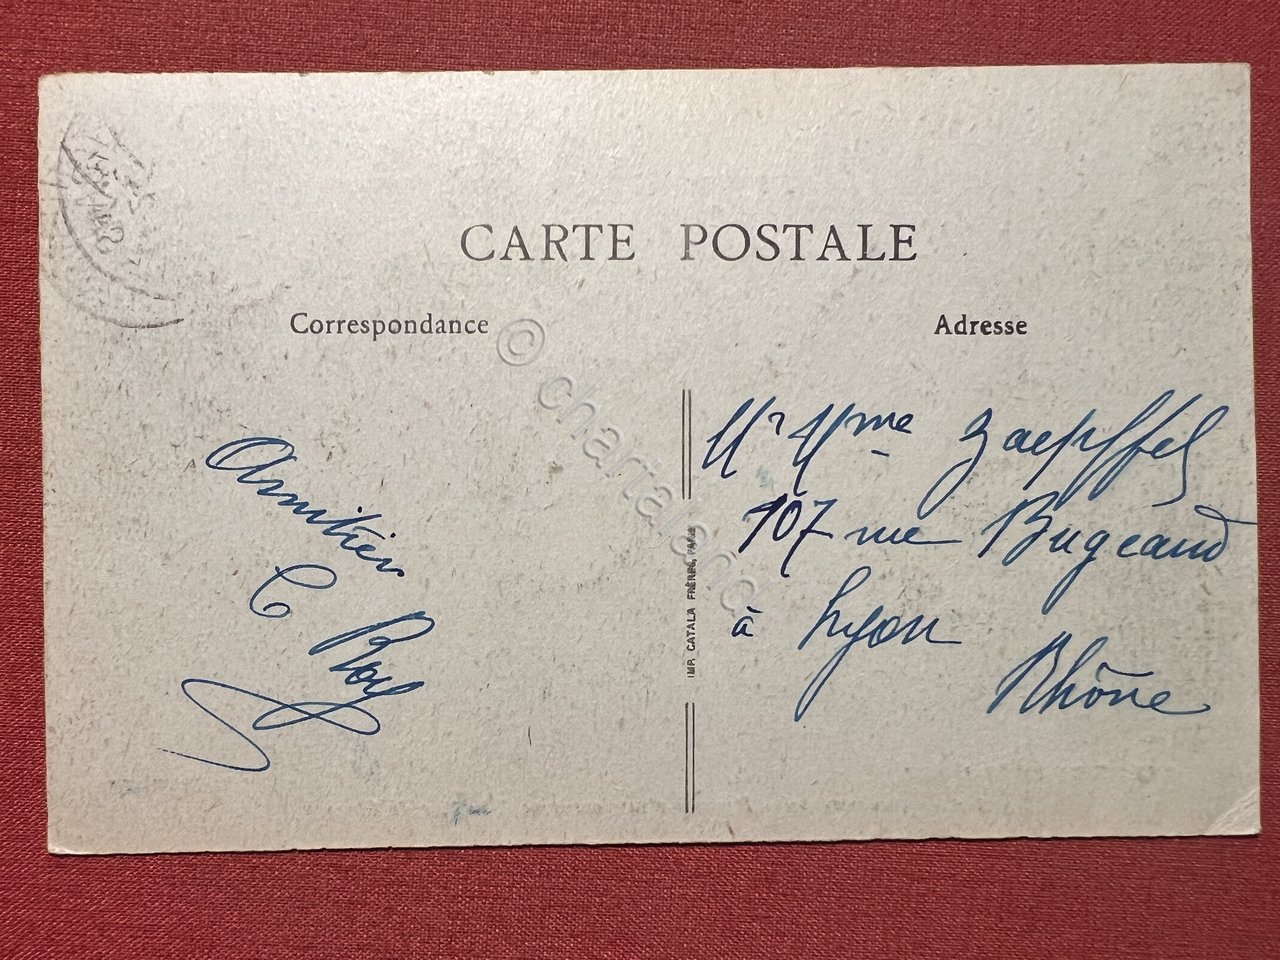 CARTE POSTALE
Correspondance
Adresse
Amitiés
C Roy
Mr Mme Zaepffel
107 rue Bugeaud
à Lyon
Rhône
IMP. CATALA FRÈRES, PARIS
© chartaland